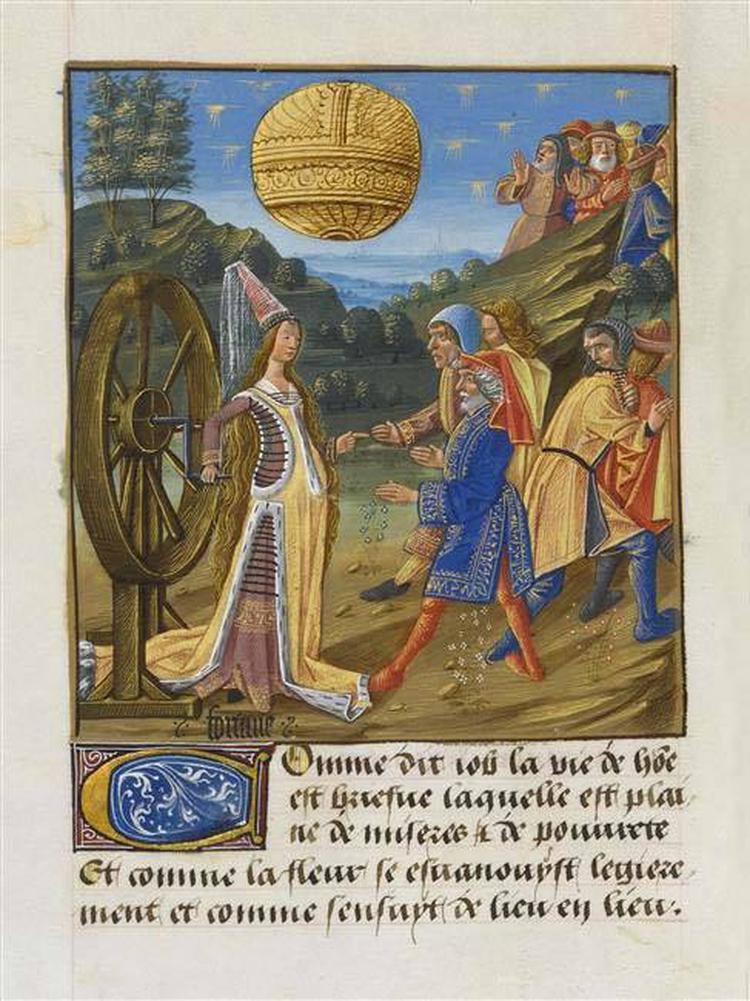 fortune
Comme dit iob la vie de hõe
est briefue laquelle est plai
ne de miseres & de pouurete
Et comme la fleur se esuanouyst legiere
ment et comme sensuyt de lieu en lieu.